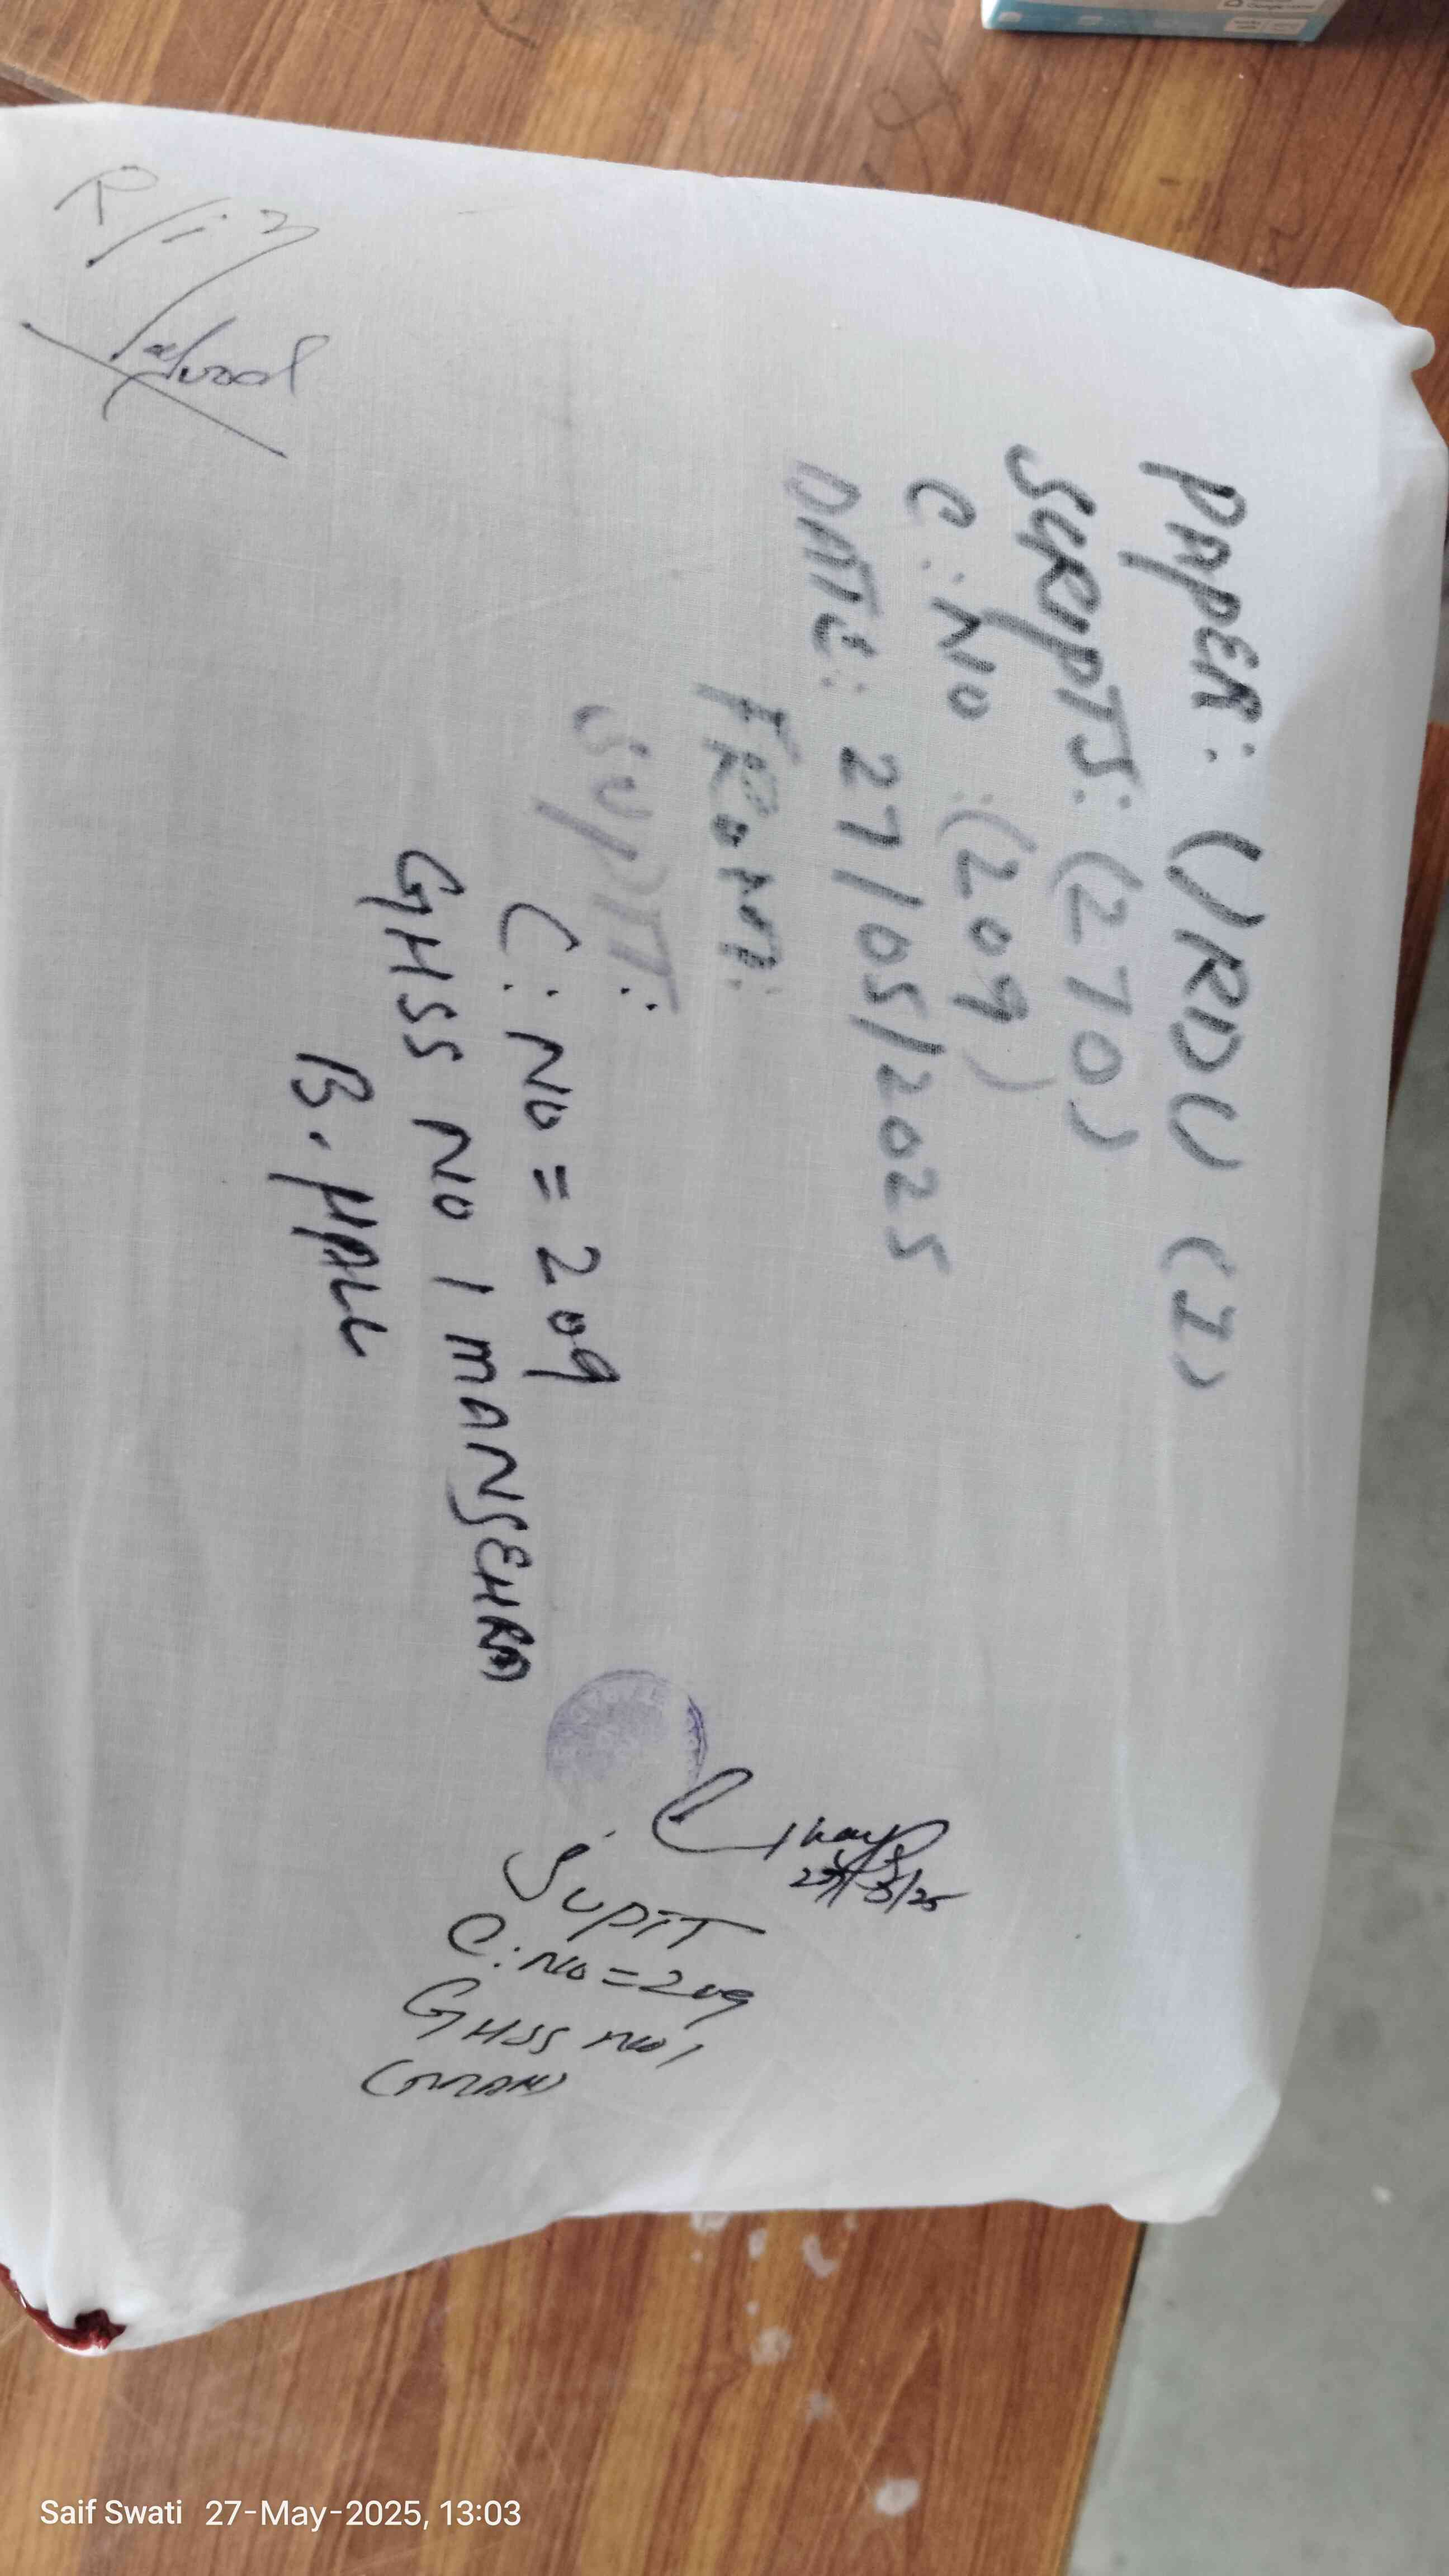 PAPER: URDU (I)
SCRIPTS: (270)
C: NO : (209)
DATE: 27/05/2025
FROM:
SUPTT:
C: NO = 209
GHSS NO 1 MANSEHRA
B. HALL
SUPTT
C: NO = 209
GHSS NO 1
Saif Swati 27-May-2025, 13:03